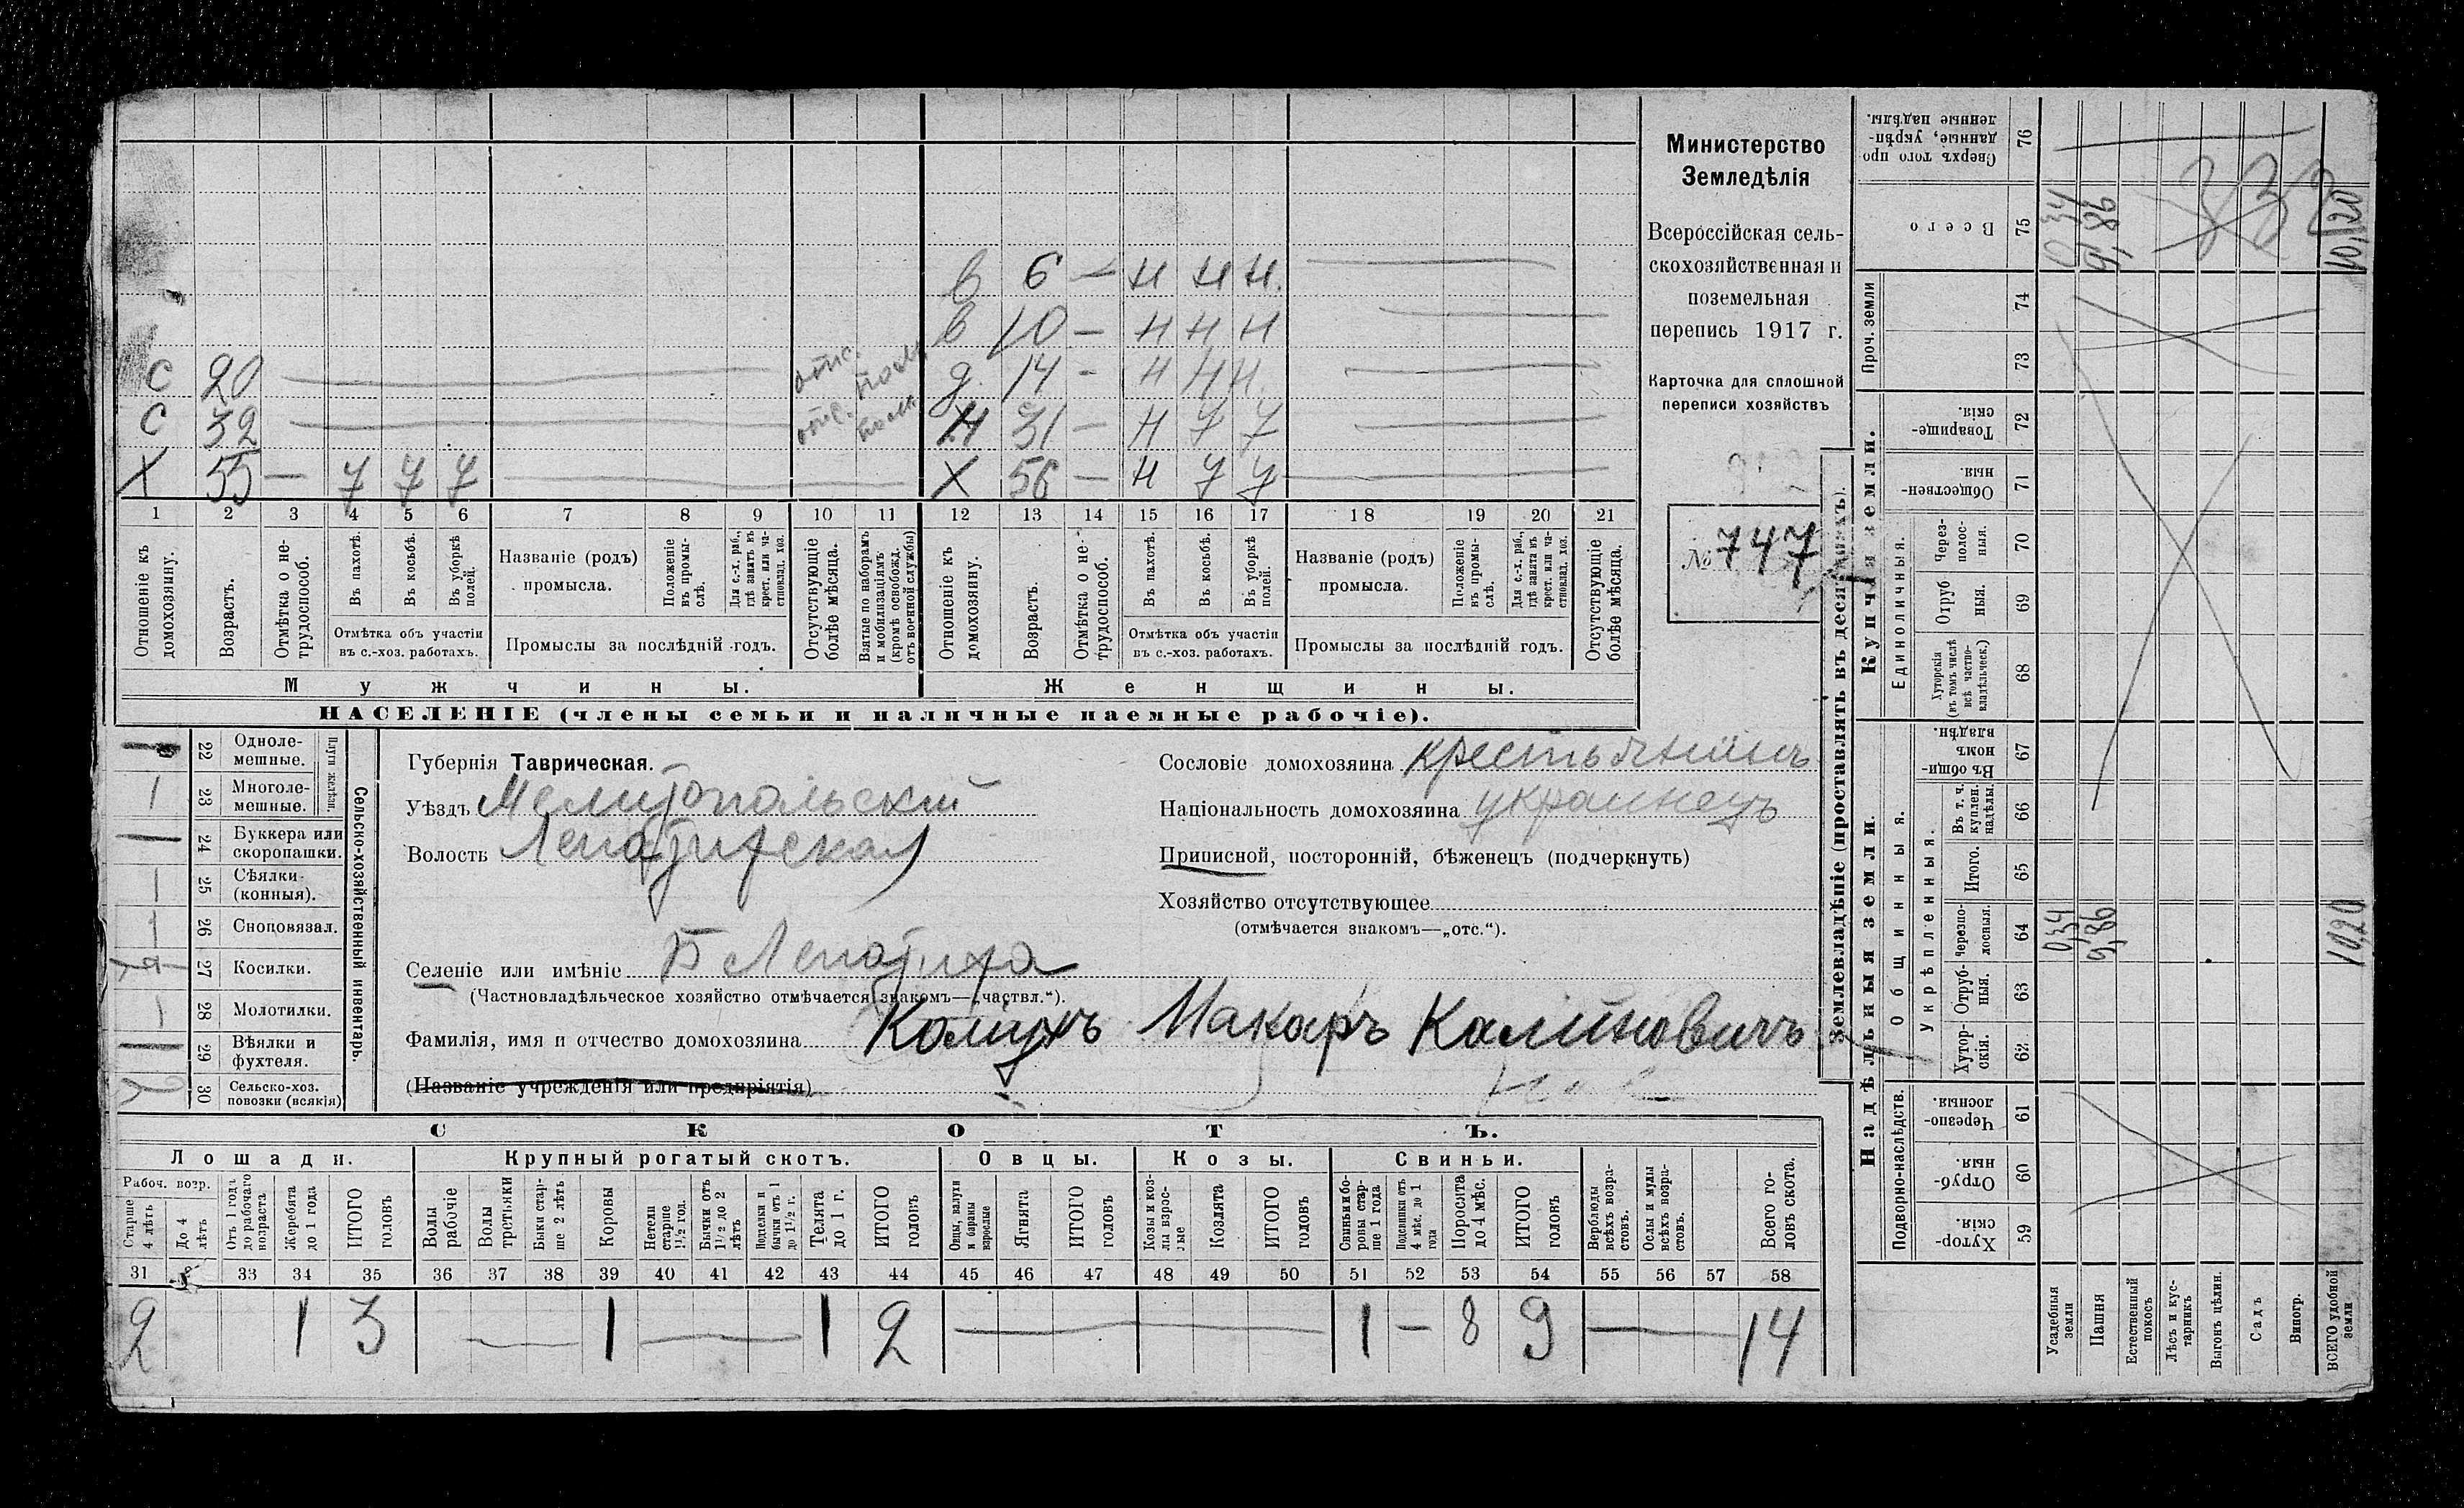 в 6 — н н н.
в 10 — н н н
С 20 отс. д. 14 - н н н.
С 32 отс. Н 31 — н у у
Х 55 — у у у Х 56 — н у у
1 2 3 4 5 6 7 8 9 10 11 12 13 14 15 16 17 18 19 20 21
Отношеніе къ домохозяину.
Возрастъ.
Отмѣтка о не-трудоспособ.
Въ пахотѣ.
Въ косьбѣ.
Въ уборкѣ полей.
Отмѣтка объ участіи
въ с.-хоз. работахъ.
Названіе (родъ)
промысла.
Положеніе въ промы-слѣ.
Для с.-х. раб., гдѣ занятъ въ крест. или ча-стновлад. хоз.
Промыслы за послѣдній годъ.
Отсутствующіе болѣе мѣсяца.
Взятые по наборамъ и мобилизаціямъ (кромѣ освобожд. отъ военной службы)
Отношеніе къ домохозяину.
Возрастъ.
Отмѣтка о не-трудоспособ.
Въ пахотѣ.
Въ косьбѣ.
Въ уборкѣ полей.
Отмѣтка объ участіи
въ с.-хоз. работахъ.
Названіе (родъ)
промысла.
Положеніе въ промы-слѣ.
Для с.-х. раб., гдѣ занятъ въ крест. или ча-стновлад. хоз.
Промыслы за послѣдній годъ.
Отсутствующіе болѣе мѣсяца.
Мужчины.
Женщины.
НАСЕЛЕНІЕ (члены семьи и наличные наемные рабочіе).
Министерство
Земледѣлія
Всероссійская сель-
скохозяйственная и
поземельная
перепись 1917 г.
Карточка для сплошной
переписи хозяйствъ
№ 747
Сельско-хозяйственный инвентарь.
Плуги желѣзн.
22 Одноле-
мешные.
1 23 Многоле-
мешные.
24 Буккера или
скоропашки.
1 25 Сѣялки
(конныя).
1 26 Сноповязал.
27 Косилки.
1 28 Молотилки.
29 Вѣялки и
фухтеля.
30 Сельско-хоз.
повозки (всякія)
Губернія Таврическая.
Уѣздъ Мелитопольский
Волость Лепатихская
Селеніе или имѣніе Б Лепатиха
(Частновладѣльческое хозяйство отмѣчается знакомъ—„частвл.“).
Фамилія, имя и отчество домохозяина Макаръ Калиновичъ
(Названіе учрежденія или предпріятія)
Сословіе домохозяина крестьянинъ
Національность домохозяина украинецъ
Приписной, посторонній, бѣженецъ (подчеркнуть)
Хозяйство отсутствующее
(отмѣчается знакомъ—„отс.“).
СКОТЪ.
Лошади. Крупный рогатый скотъ. Овцы. Козы. Свиньи.
Рабоч. возр.
Старше 4 лѣтъ
До 4 лѣтъ
Отъ 1 года до рабочаго возраста
Жеребята до 1 года
ИТОГО головъ
Волы рабочіе
Волы третьяки
Быки стар-ше 2 лѣтъ
Коровы
Нетели старше 1½ год.
Бычки отъ 1½ до 2 лѣтъ
Подтелки и бычки отъ 1 до 1½ г.
Телята до 1 г.
ИТОГО головъ
Овцы, валухи и бараны взрослые
Ягнята
ИТОГО головъ
Козы и коз-лы взрос-лые
Козлята
ИТОГО головъ
Свиньи и бо-ровы стар-ше 1 года
Подсвинки отъ 4 мѣс. до 1 года
Поросята до 4 мѣс.
ИТОГО головъ
Верблюды всѣхъ возра-стовъ.
Ослы и мулы всѣхъ возра-стовъ.
Всего го-ловъ скота.
31 33 34 35 36 37 38 39 40 41 42 43 44 45 46 47 48 49 50 51 52 53 54 55 56 57 58
2 1 3 — 1 — 1 2 — 1 — 8 9 — 14
Землевладѣніе (проставлять въ десятинахъ).
Надѣльныя земли.
Купчія земли.
Проч. земли
Подворно-наслѣдств.
Общинныя.
Укрѣпленныя.
Единоличныя.
Сверхъ того про-данные, укрѣп-ленные надѣлы. 76
Всего 75 0,34 9,86 10,20
74
73
Товарище-скія. 72
Обществен-ныя. 71
Через-полос-ныя. 70
Отруб-ныя. 69
Хуторскія (въ томъ числѣ всѣ частно-владѣльческ.) 68
Въ общин-номъ владѣн. 67
Въ т. ч. куплен. надѣлы. 66
Итого. 65
Черезпо-лосныя. 64 0,34 9,86 10,20
Отруб-ныя. 63
Хутор-скія. 62
Черезпо-лосныя. 61
Отруб-ныя. 60
Хутор-скія. 59
Усадебныя земли
Пашня
Естественный покосъ
Лѣсъ и кус-тарникъ
Выгонъ цѣлин.
Садъ
Виногр.
ВСЕГО удобной земли